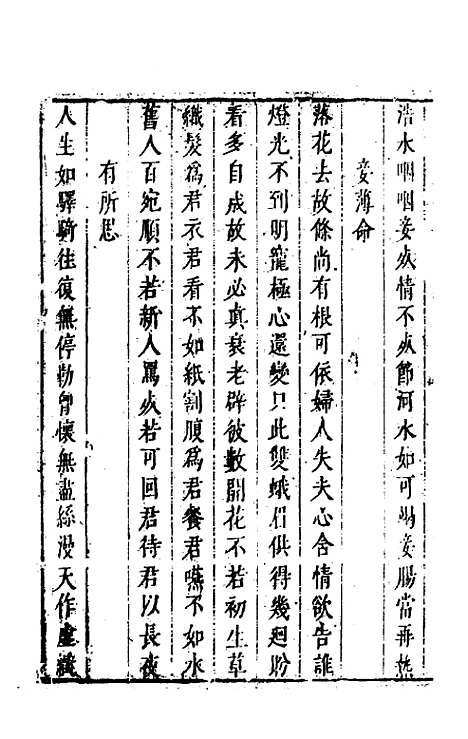 浩水咽咽妾烖情不烖節河水如可竭妾腸當再熱
妾薄命
落花去故條尚有根可依婦人失夫心含情欲告誰
燈光不到明寵極心還變只此雙蛾眉供得幾廻盼
看多自成故未必眞衰老辟彼數開花不若初生草
織髮爲君衣君看不如紙割腹爲君餐君嚥不如水
舊人百宛順不若新人罵死若可回君待君以長夜
有所思
人生如驛騎往復無停勒胷懷無盡絲漫天作虛織